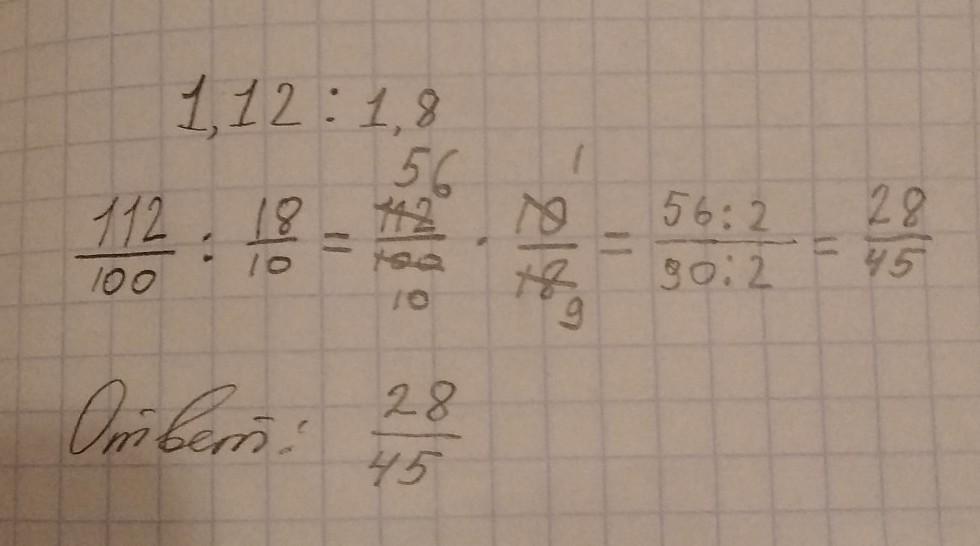 1,12 : 1,8
112/100 : 18/10 = 56 112/100 10 · 1 10/18 9 = 56:2/90:2 = 28/45
Ответ: 28/45